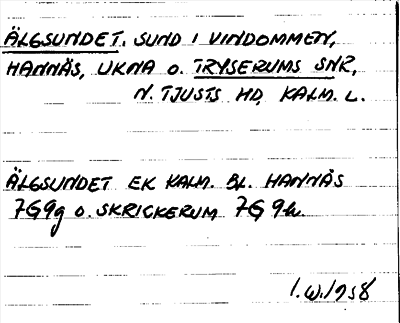 ÄLGSUNDET. SUND I VINDOMMEN,
HANNÄS, UKNA O. TRYSERUMS SNR,
N. TJUSTS HD, KALM. L.
ÄLGSUNDET EK KALM. BL. HANNÄS
7G9g O. SKRICKERUM 7G 9h.
I.W. 1958